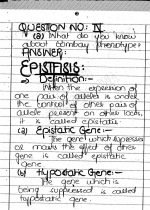 QUESTION NO: IV
(a) What do you know
about bombay phenotype?
ANSWER:
EPISTASIS:
Definition:-
When the expression of
one pair of alleles is under
the control of other pair of
allele present on other locus,
it is called epistasis.
(a) Epistatic Gene:-
The gene which suppresses
or masks the effect of other
gene is called epistatic
gene.
(b) Hypostatic Gene:-
The gene which is
being suppressed is called
hypostatic gene.